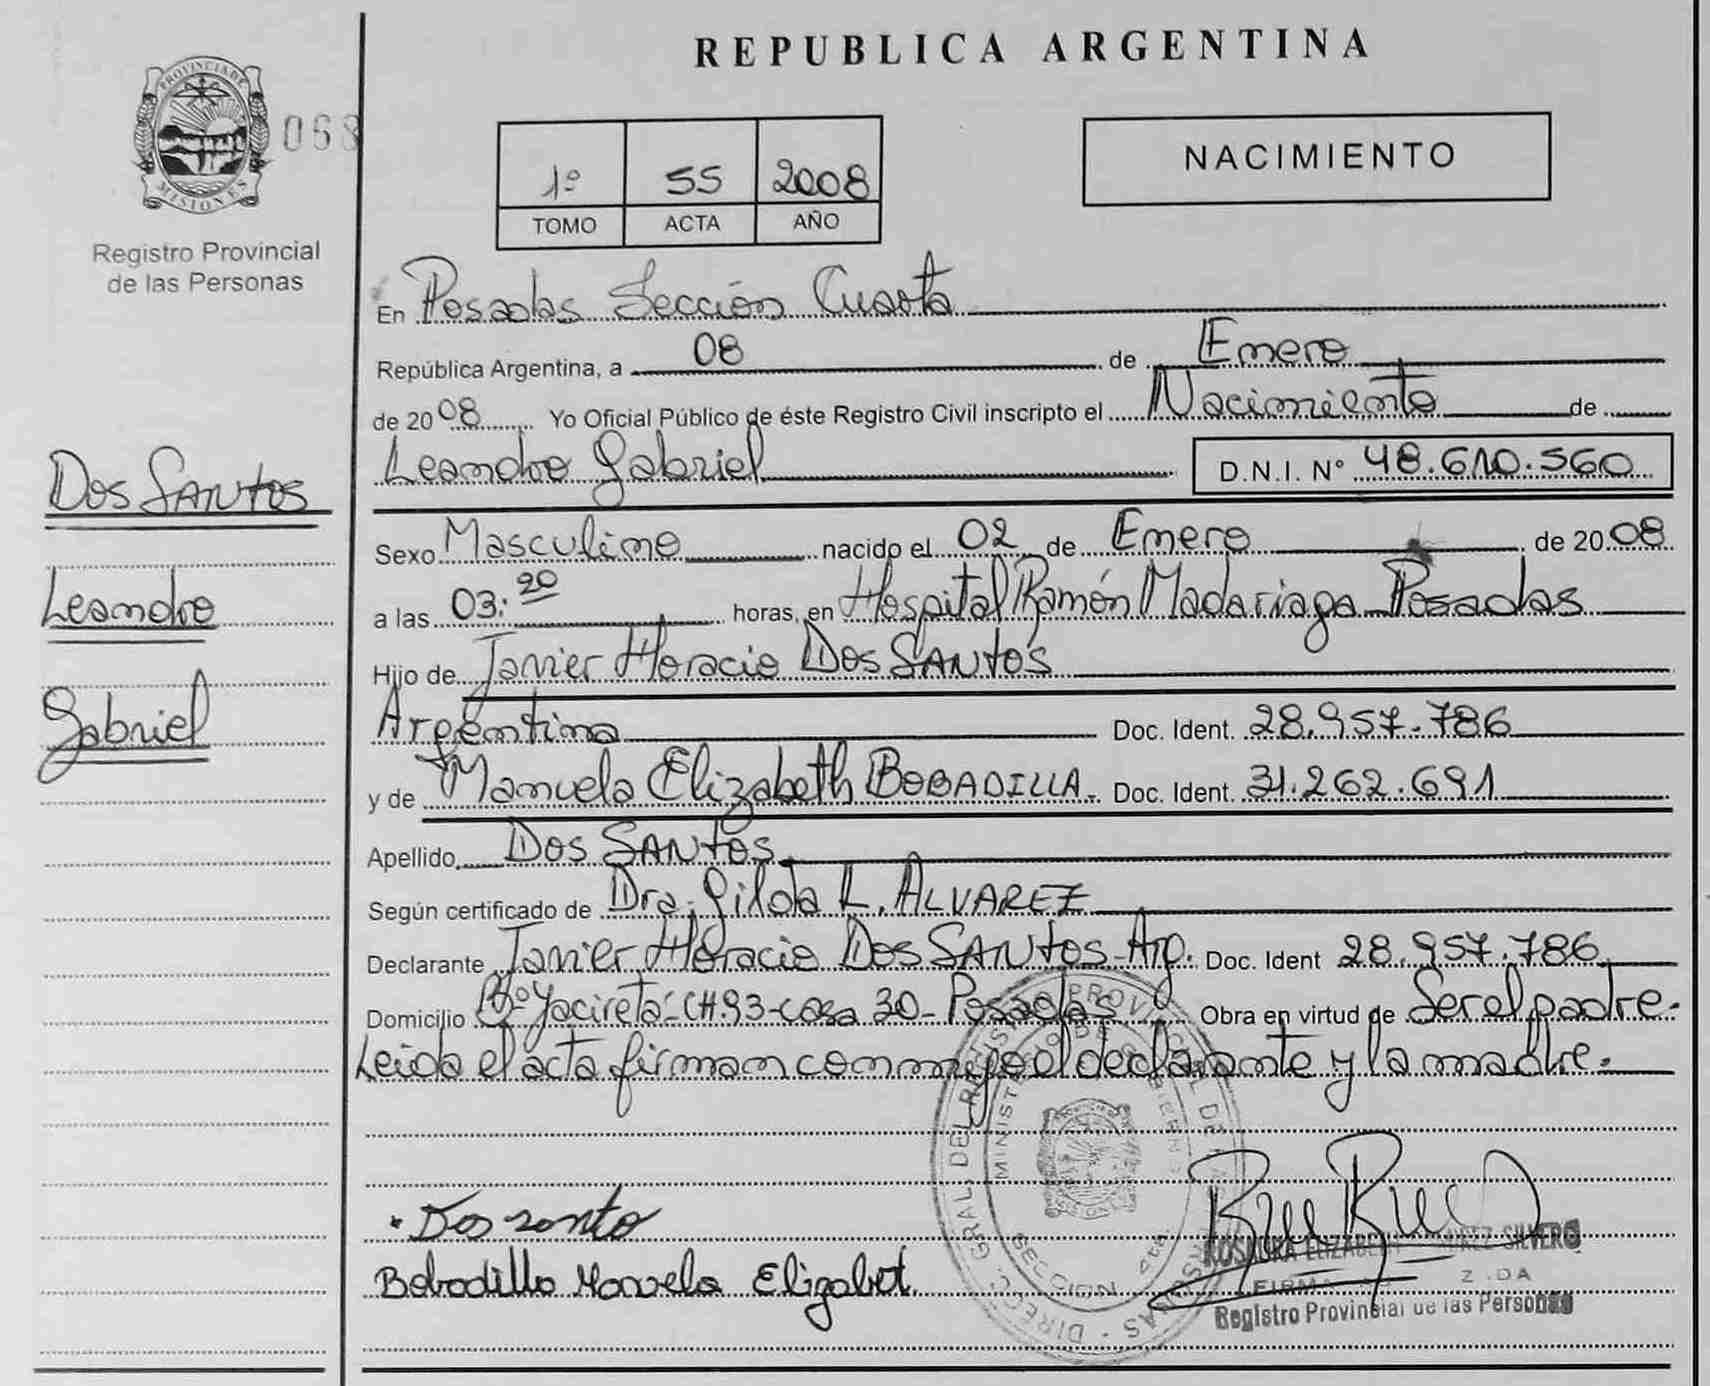 REPUBLICA ARGENTINA
PROVINCIA DE
MISIONES
068
Registro Provincial
de las Personas
1º 55 2008
TOMO ACTA AÑO
NACIMIENTO
En Posadas Sección Cuarta
República Argentina, a 08 de Enero
de 2008 Yo Oficial Público de éste Registro Civil inscripto el Nacimiento de
Leandro Gabriel D.N.I. Nº 48.610.560
Dos SANtos
Leandro
Gabriel
Sexo Masculino nacido el 02 de Enero de 2008
a las 03:20 horas, en Hospital Ramón Madariaga Posadas
Hijo de Javier Horacio Dos SANtos
Argentina Doc. Ident. 28.957.786
y de Manuela Elizabeth BOBADILLA. Doc. Ident. 31.262.691
Apellido Dos SANtos
Según certificado de Dra. Gilda L. ALVAREZ
Declarante Javier Horacio Dos SANtos-Arg. Doc. Ident 28.957.786
Domicilio Bº Yacireta-CH.93-casa 30-Posadas Obra en virtud de Ser el padre.
Leida el acta firman conmigo el declarante y la madre.
Dos santo
Bobadilla Manuela Elizabet
ROSAURA ELIZABETH SILVERO
FIRMA
Registro Provincial de las Personas